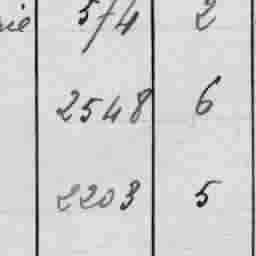 574 2
2548 6
2203 5